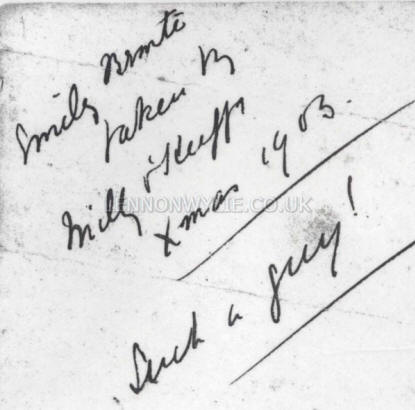 Emily Bronte
taken by
Milly
Xmas 1903.
Such a guy!
LENNONWYLIE.CO.UK